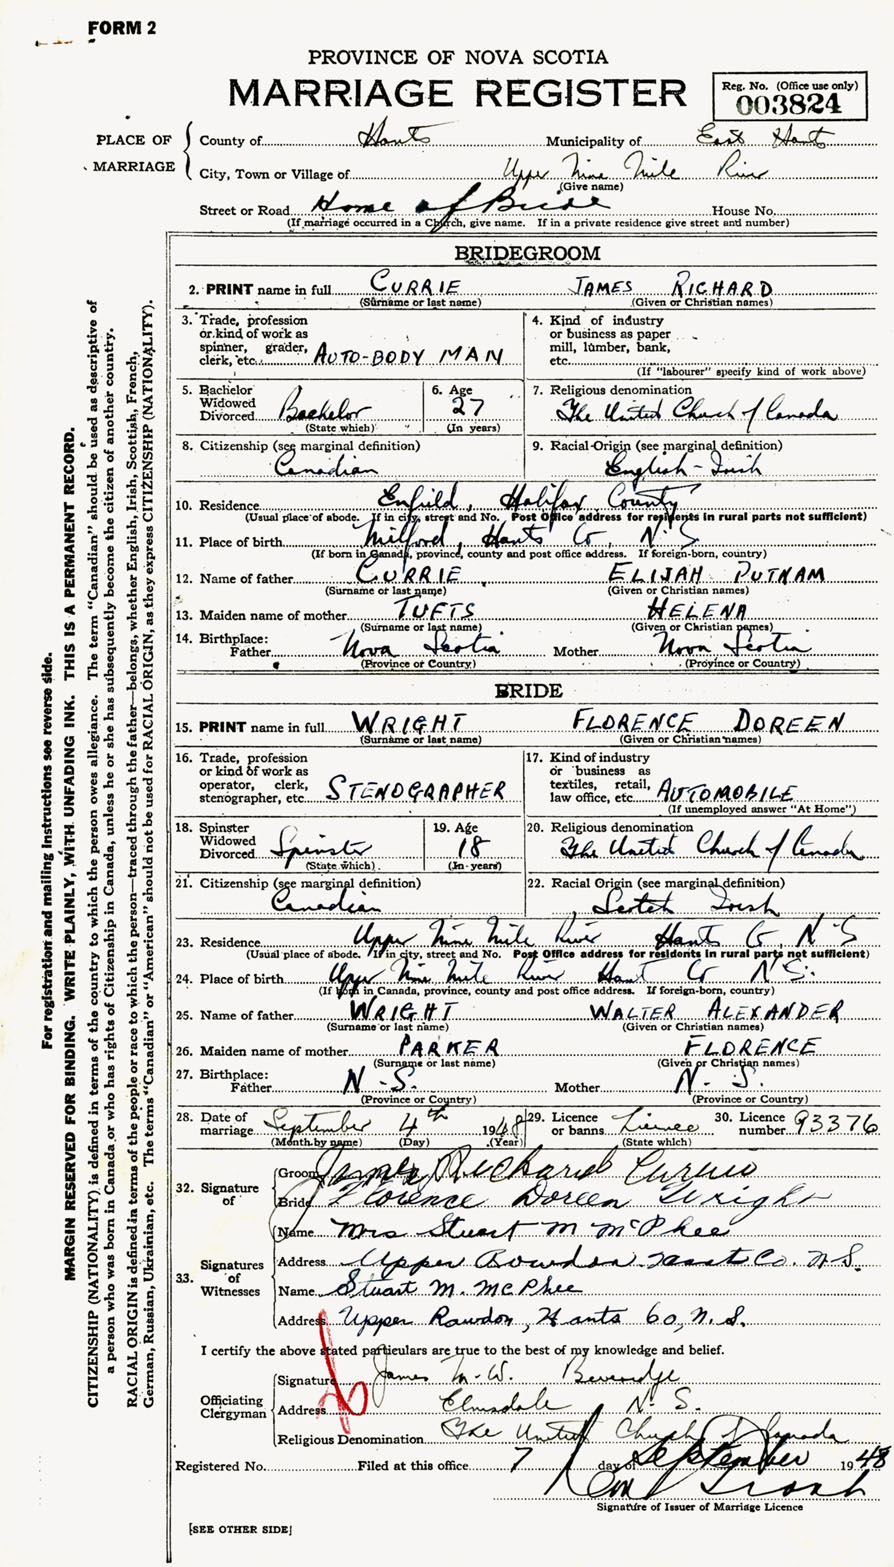 FORM 2
PROVINCE OF NOVA SCOTIA
MARRIAGE REGISTER
Reg. No. (Office use only)
003824
PLACE OF MARRIAGE
County of Hants Municipality of East Hants
City, Town or Village of Upper Nine Mile River
(Give name)
Street or Road Home of Bride House No.
(If marriage occurred in a Church, give name. If in a private residence give street and number)
BRIDEGROOM
2. PRINT name in full CURRIE JAMES RICHARD
(Surname or last name) (Given or Christian names)
3. Trade, profession or kind of work as spinner, grader, clerk, etc. AUTO-BODY MAN
4. Kind of industry or business as paper mill, lumber, bank, etc.
(If "labourer" specify kind of work above)
5. Bachelor Widowed Divorced Bachelor
(State which)
6. Age 27
(In years)
7. Religious denomination
The United Church of Canada
8. Citizenship (see marginal definition)
Canadian
9. Racial Origin (see marginal definition)
English-Irish
10. Residence Enfield, Halifax County
(Usual place of abode. If in city, street and No. Post Office address for residents in rural parts not sufficient)
11. Place of birth Milford, Hants Co, N.S
(If born in Canada, province, county and post office address. If foreign-born, country)
12. Name of father CURRIE ELIJAH PUTNAM
(Surname or last name) (Given or Christian names)
13. Maiden name of mother TUFTS HELENA
(Surname or last name) (Given or Christian names)
14. Birthplace:
Father Nova Scotia Mother Nova Scotia
(Province or Country) (Province or Country)
BRIDE
15. PRINT name in full WRIGHT FLORENCE DOREEN
(Surname or last name) (Given or Christian names)
16. Trade, profession or kind of work as operator, clerk, stenographer, etc. STENOGRAPHER
17. Kind of industry or business as textiles, retail, law office, etc. AUTOMOBILE
(If unemployed answer "At Home")
18. Spinster Widowed Divorced Spinster
(State which)
19. Age 18
(In years)
20. Religious denomination
The United Church of Canada
21. Citizenship (see marginal definition)
Canadian
22. Racial Origin (see marginal definition)
Scotch Irish
23. Residence Upper Nine Mile River Hants Co, N S
(Usual place of abode. If in city, street and No. Post Office address for residents in rural parts not sufficient)
24. Place of birth Upper Nine Mile River Hant Co N S.
(If born in Canada, province, county and post office address. If foreign-born, country)
25. Name of father WRIGHT WALTER ALEXANDER
(Surname or last name) (Given or Christian names)
26. Maiden name of mother PARKER FLORENCE
(Surname or last name) (Given or Christian names)
27. Birthplace:
Father N.S. Mother N.S.
(Province or Country) (Province or Country)
28. Date of marriage September 4th 1948
(Month by name) (Day) (Year)
29. Licence or banns Licence
(State which)
30. Licence number 93376
32. Signature of
Groom James Richard Currie
Bride Florence Doreen Wright
33. Signatures of Witnesses
Name Mrs Stuart M McPhee
Address Upper Rawdon Hants Co. N.S.
Name Stuart M. McPhee
Address Upper Rawdon, Hants Co, N.S.
I certify the above stated particulars are true to the best of my knowledge and belief.
Officiating Clergyman
Signature James M. W. Beveridge
Address Elmsdale N. S.
Religious Denomination The United Church of Canada
Registered No. Filed at this office 7 day of September 1948
Signature of Issuer of Marriage Licence
[SEE OTHER SIDE]
For registration and mailing instructions see reverse side.
MARGIN RESERVED FOR BINDING. WRITE PLAINLY, WITH UNFADING INK. THIS IS A PERMANENT RECORD.
CITIZENSHIP (NATIONALITY) is defined in terms of the country to which the person owes allegiance. The term "Canadian" should be used as descriptive of
a person who was born in Canada or who has rights of Citizenship in Canada, unless he or she has subsequently become the citizen of another country.
RACIAL ORIGIN is defined in terms of the people or race to which the person—traced through the father—belongs, whether English, Irish, Scottish, French,
German, Russian, Ukrainian, etc. The terms "Canadian" or "American" should not be used for RACIAL ORIGIN, as they express CITIZENSHIP (NATIONALITY).